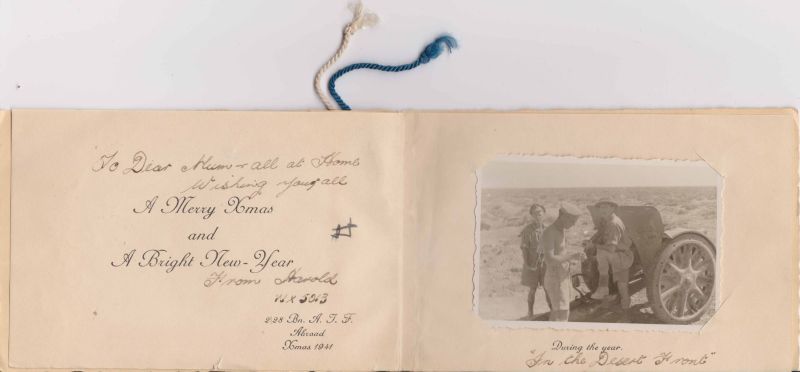 To Dear Mum & all at Home
Wishing you all
A Merry Xmas
and
A Bright New-Year
From Harold
WX 5913
2/28 Bn. A. I. F.
Abroad
Xmas 1941
During the year.
"In the Desert Front"